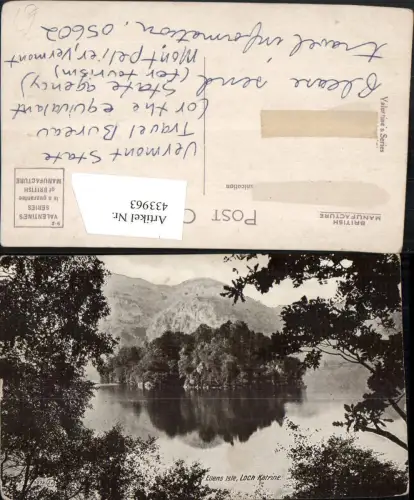 159
Vermont State
Travel Bureau
(or the equivalant
State agency)
(fer tourism)
Montpelier, Vermont
05602
Please send
travel information,
Valentine's Series
POST C
BRITISH
MANUFACTURE
VALENTINES
SERIES
is a guarantee
of BRITISH
MANUFACTURE
Artikel Nr.
433963
Ellens Isle, Loch Katrine